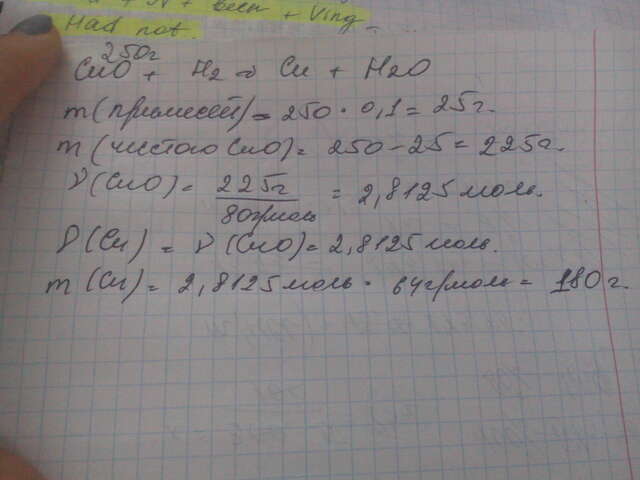 + Ving
Had not
250г
CuO + H2 = Cu + H2O
m(примесей) = 250 · 0,1 = 25г.
m(чистого CuO) = 250 - 25 = 225г.
ν(CuO) = 225г / 80г/моль = 2,8125 моль.
ν(Cu) = ν(CuO) = 2,8125 моль.
m(Cu) = 2,8125 моль · 64г/моль = 180 г.